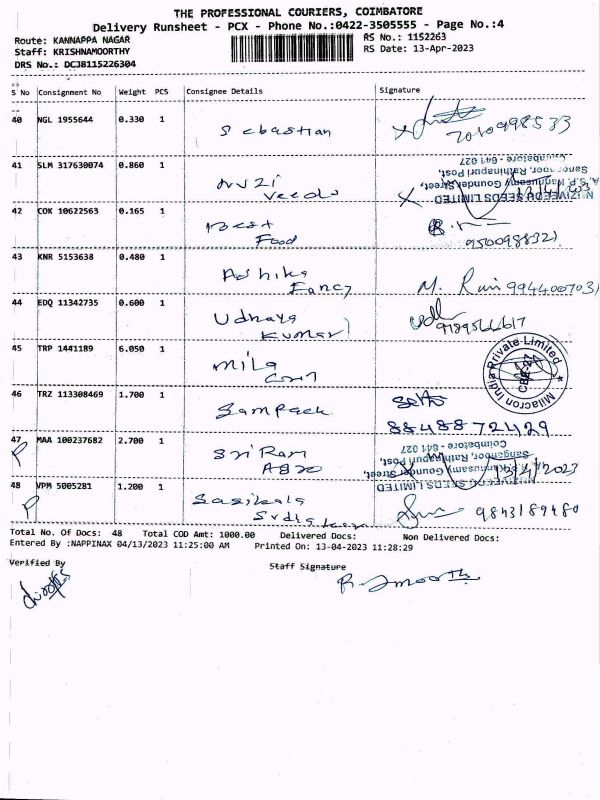 THE PROFESSIONAL COURIERS, COIMBATORE
Delivery Runsheet - PCX - Phone No.:0422-3505555 - Page No.:4
Route: KANNAPPA NAGAR
RS No.: 1152263
Staff: KRISHNAMOORTHY
RS Date: 13-Apr-2023
DRS No.: DCJB115226304
S No Consignment No Weight PCS Consignee Details Signature
40 NGL 1955644 0.330 1 Sebastian
41 SLM 317630074 0.860 1 Nuzi
Veedu
NUZIVEEDU SEEDS LIMITED
Gounder Street,
Rathinapuri Post,
Coimbatore - 641 027
42 COK 10622563 0.165 1 Best
Food
9500988321
43 KNR 5153638 0.480 1 Ashika
Fancy
M. Rani
44 EDQ 11342735 0.600 1 Udhaya
Kumar
45 TRP 1441189 6.050 1 Mila
Milacron India Private Limited
CBE-27
46 TRZ 113308469 1.700 1 Sampack
8848872429
47 MAA 100237682 2.700 1 Sri Ram
Agro
SEEDS LIMITED
Gounder Street,
Sanganoor, Rathinapuri Post,
Coimbatore - 641 027
13/4/2023
48 VPM 5005281 1.200 1 Sasikala
9843189480
Total No. Of Docs: 48 Total COD Amt: 1000.00 Delivered Docs: Non Delivered Docs:
Entered By :NAPPINAX 04/13/2023 11:25:00 AM Printed On: 13-04-2023 11:28:29
Verified By
Staff Signature